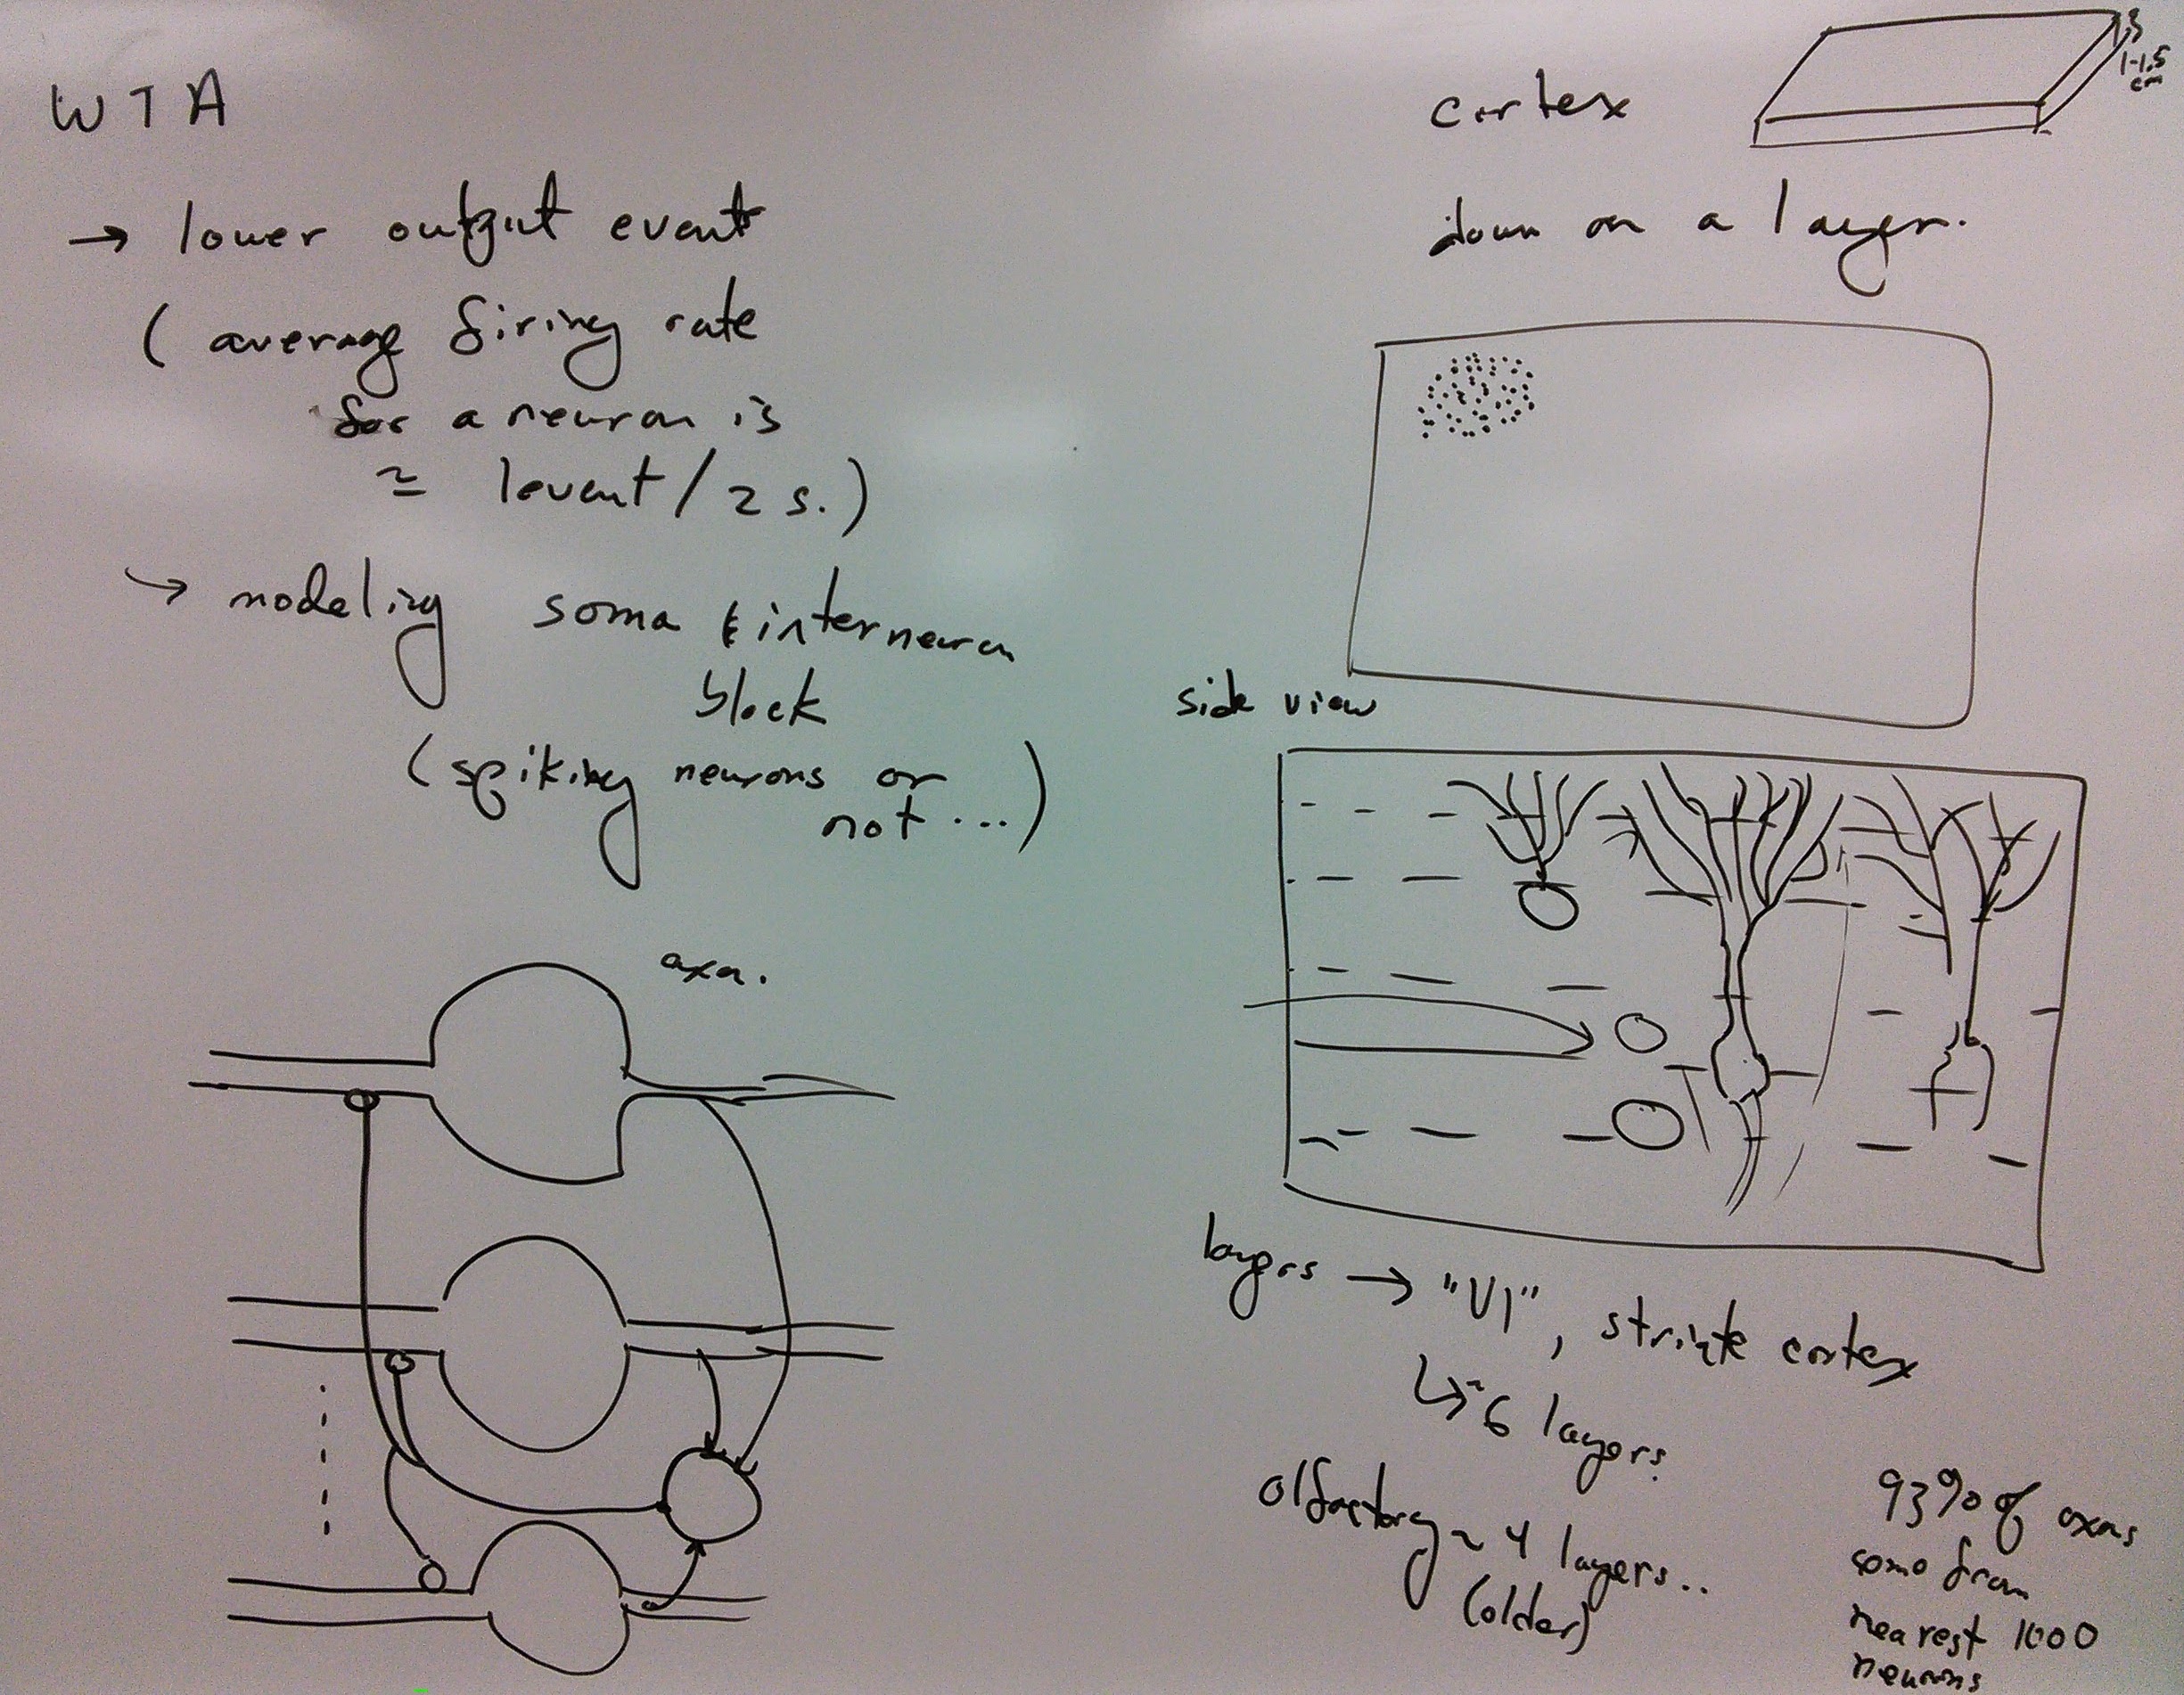 WTA
→ lower output event
( average firing rate
for a neuron is
≃ 1event / 2 s.)
→ modeling soma & interneuron
block
(spiking neurons or
not ...)
axon
cortex
1-1.5
cm
down on a layer.
side view
layers → "V1", striate cortex
↳ ~6 layers
olfactory ~ 4 layers..
(older)
93% of axons
come from
nearest 1000
neurons